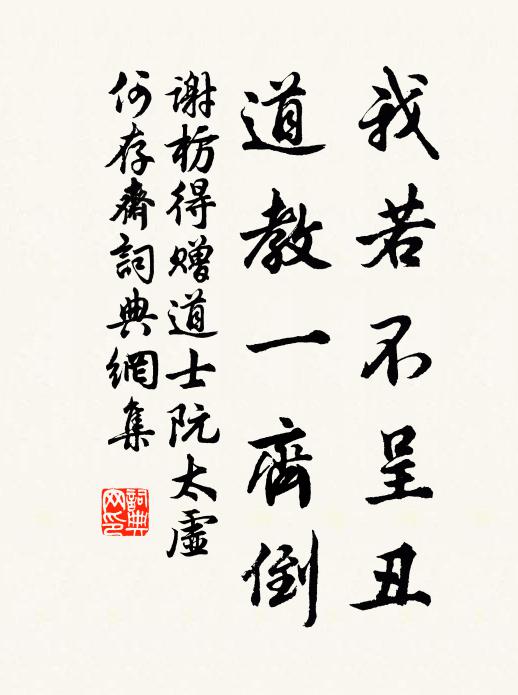 我若不呈丑
道教一齊倒
謝枋得赠道士阮太虛
何存齋詞典網集
詞典网印